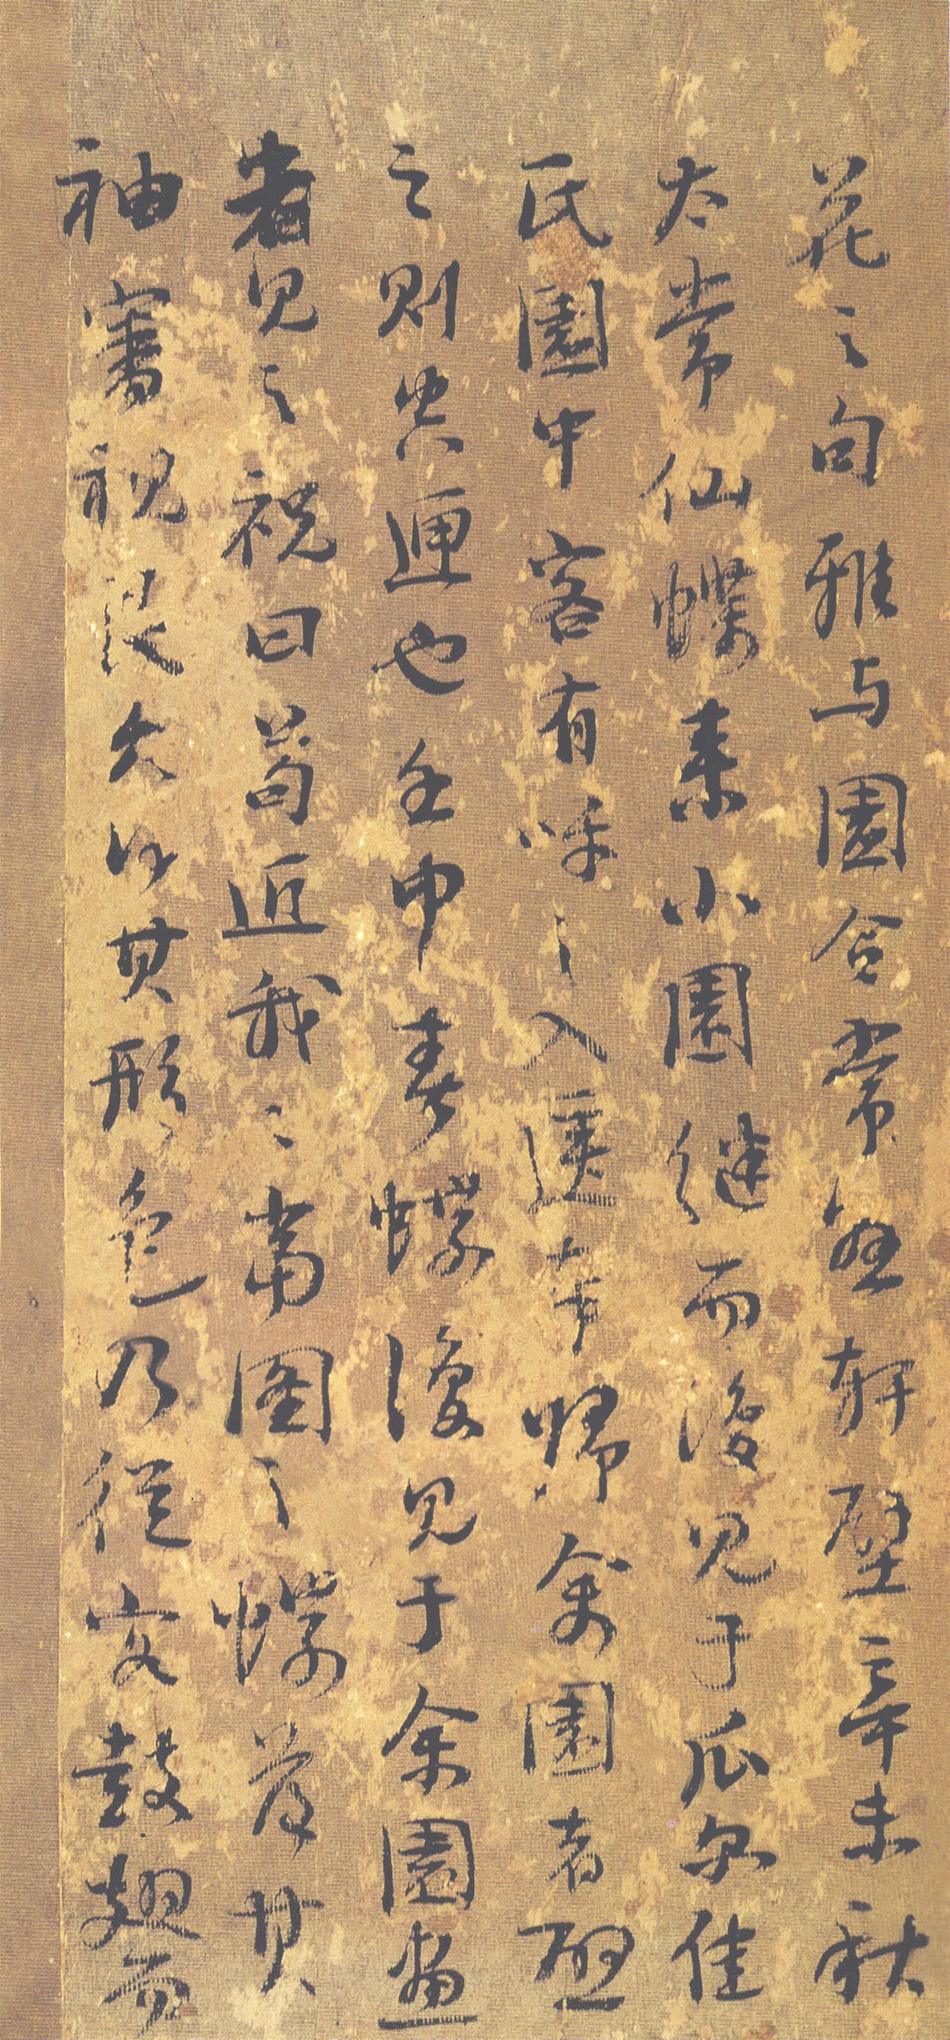 花之句雅与園合常懸軒壁辛未秋
太常仙蝶来小園继而復見于瓜尔佳
氏園中客有呼之入匣奉歸余園者啓
之則空匣也壬申春蝶復見于余園畫
者見之祝曰苟近我〻當圖之蝶落其
袖審視良久得其形色乃從容鼓翅而